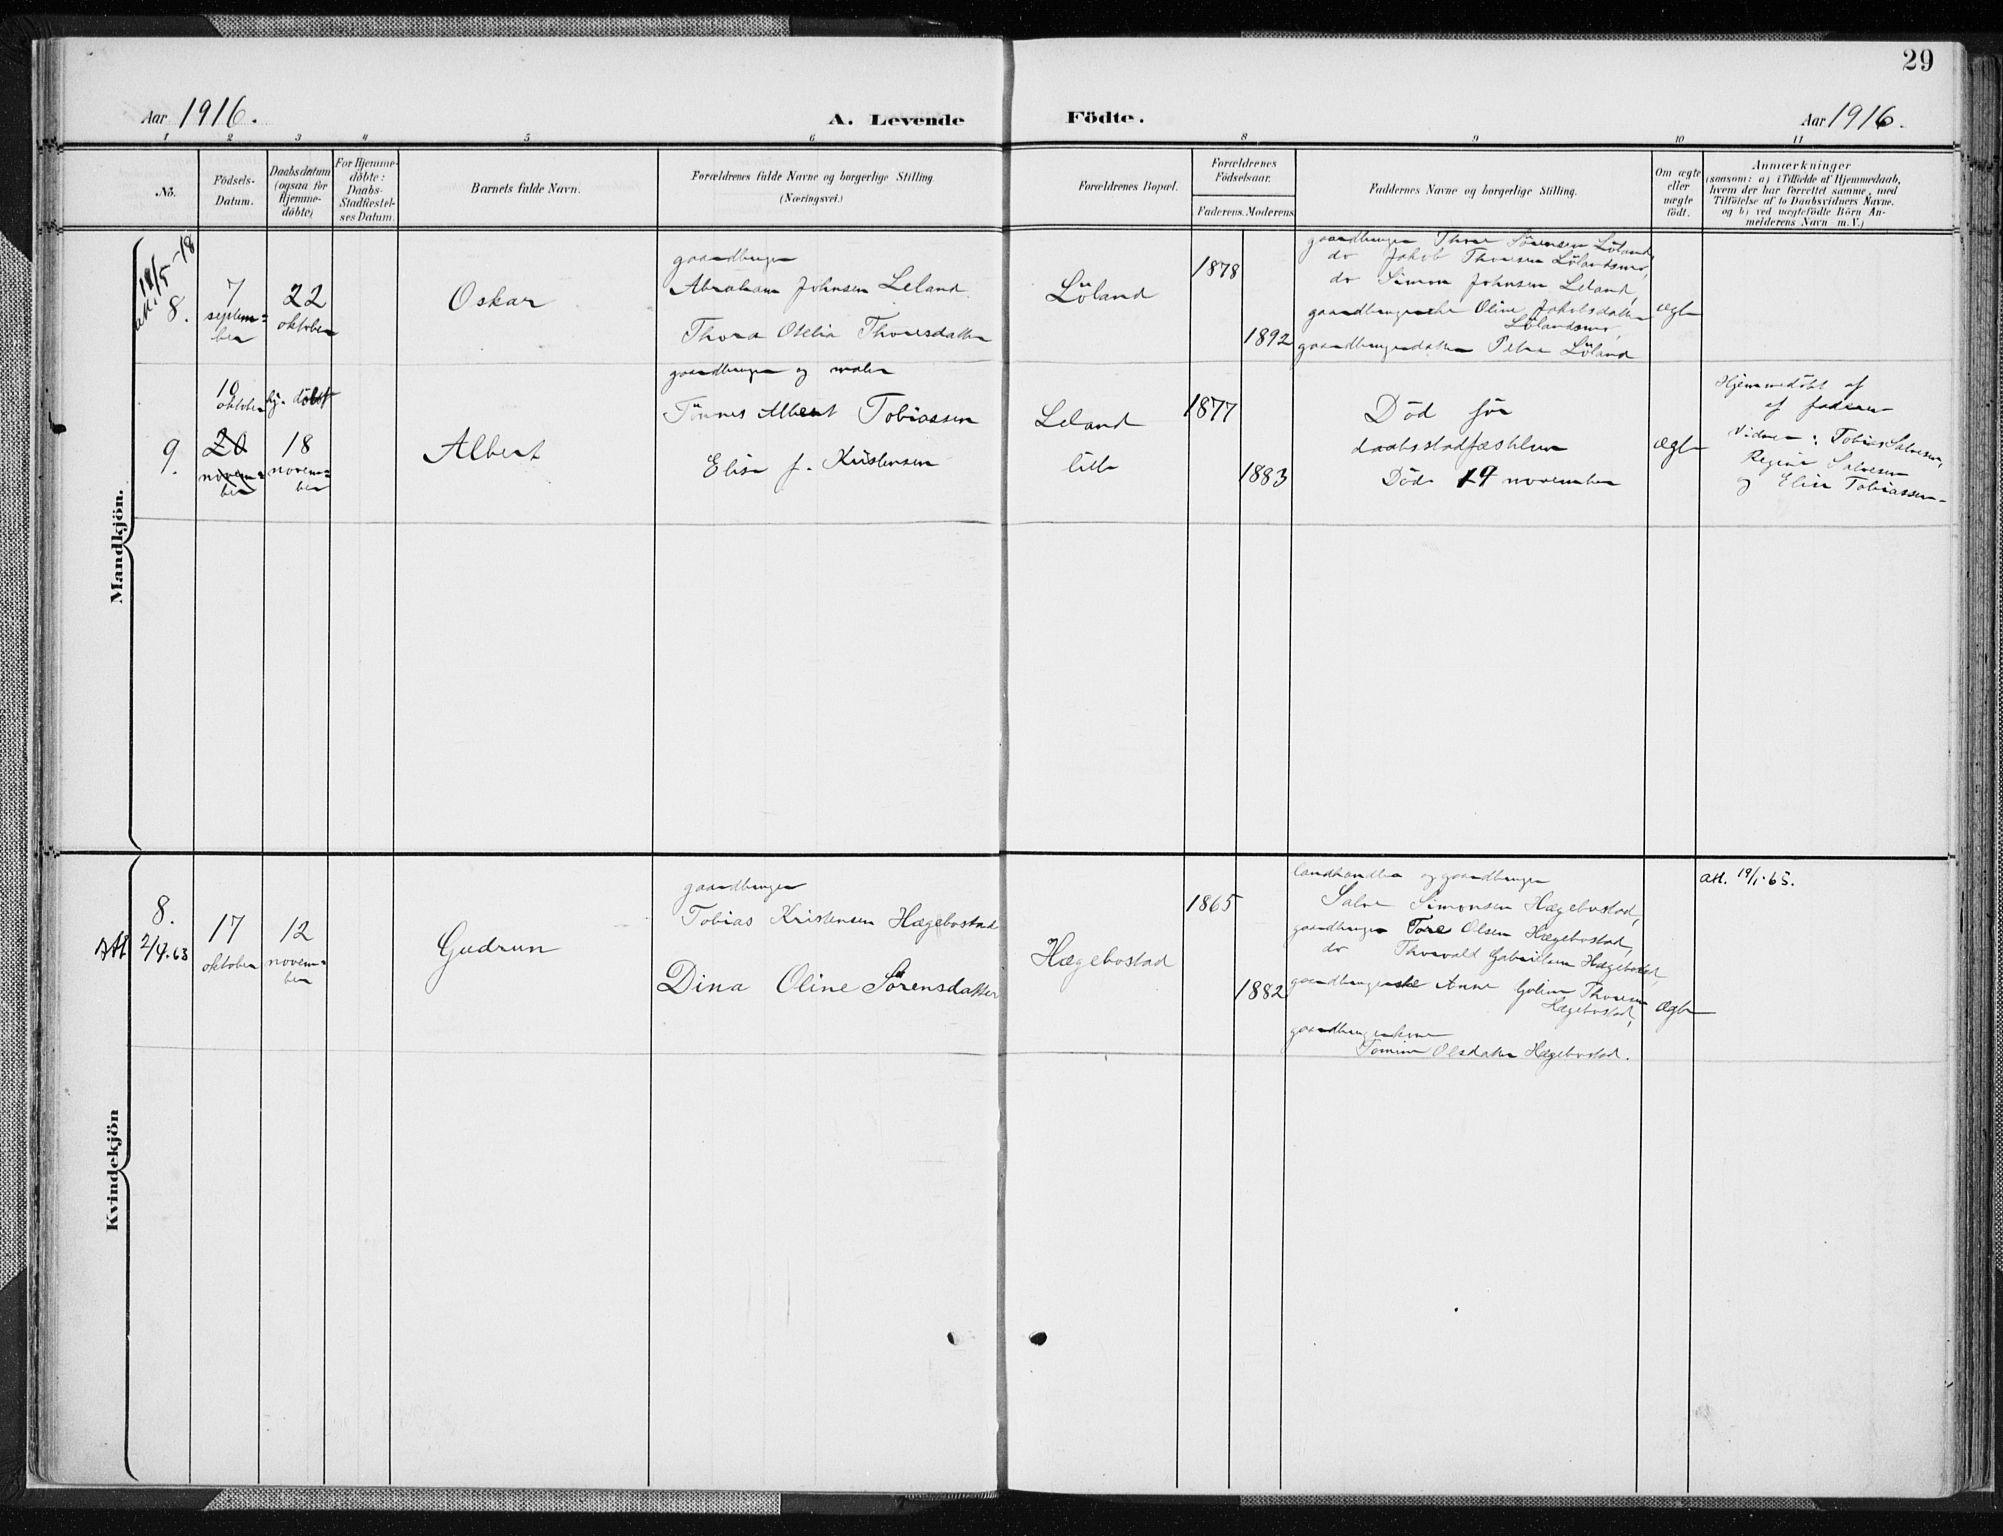 29
Aar 1916.
A. Levende Födte.
Aar 1916.
1 2 3 4 5 6 8 9 10 11
No.
Födsels-
Datum.
Daabsdatum
(ogsaa for
Hjemme-
döbte)
For Hjemme-
döbte:
Daabs-
Stadfæstel-
ses Datum.
Barnets fulde Navn.
Forældrenes fulde Navne og borgerlige Stilling.
(Næringsvei.)
Forældrenes Bopæl.
Forældrenes
Födselsaar.
Faderens. Moderens
Faddernes Navne og borgerlige Stilling.
Om ægte
eller
uægte
födt.
Anmærkninger
(saasom: a) i Tilfælde af Hjemmedaab,
hvem der har forrettet samme, med
Tilföielse af to Daabsvidners Navne.
og b) ved uægtefödte Börn An-
melderens Navn m. V.)
Mandkjön.
att. 18/5-18
8.
7
septem=
ber
22
oktober
Oskar
gaardbruger
Abraham Johnsen Leland
Thora Otelia Thoresdatter
Löland
1878
1892
gaardbruger Thore Sörensen Löland,
do Jakob Thoresen Lölandsmo,
do Simon Johnsen Leland,
gaardbrugerske Oline Jakobsdatter
Lölandsmo,
gaardbrugerdatter Petra Löland
ægte
9.
10
oktober
20
novem=
ber
hj. döbt
18
novem=
ber
Albert
gaardbruger og maler
Tönnes Albert Tobiassen
Elise f. Kristensen
Leland
lille
1877
1883
Död för
daabsstadfæstelsen
Död 19 november
ægte
Hjemmedöbt af
af faderen
Vidner: Tobias Salvesen,
Regine Salvesen
og Elise Tobiassen
Kvindekjön
8.
Att 2/4.63
17
oktober
12
novem=
ber
Gudrun
gaardbruger
Tobias Kristensen Hægebostad
Dina Oline Sörensdatter
Hægebostad
1865
1882
landhandler og gaardbruger
Salve Simonsen Hægebostad,
gaardbruger Tore Olsen Hægebostad,
do Thorvald Gabrielsen Hægebostad,
gaardbrugerske Anne Goline Thoresen
Hægebostad,
gaardbrugerkone
Tomine Olsdatter Hægebostad.
ægte
att. 19/1-65.